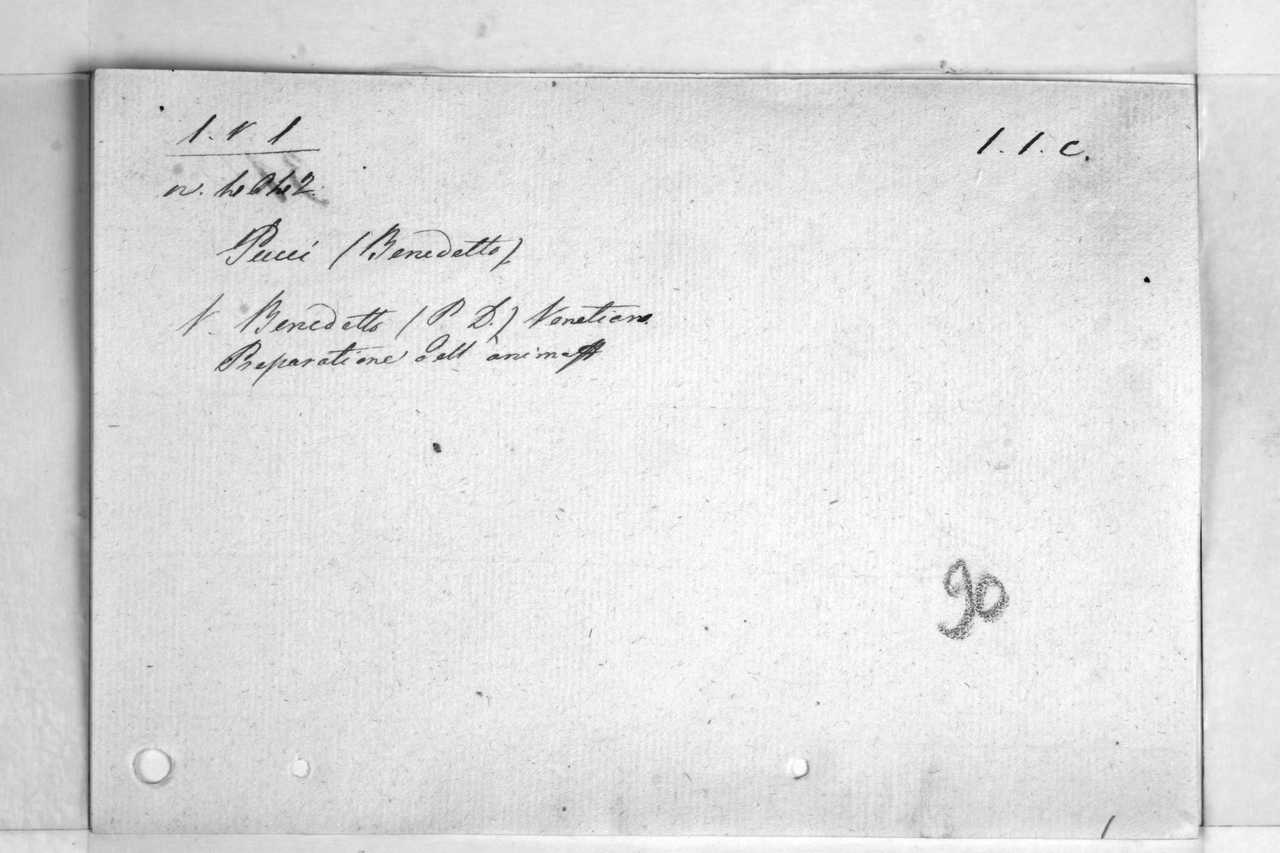 1. v. 1
1. 1. c.
n. 4042.
Pucci (Benedetto)
V. Benedetto (P. D.) Venetiano
Preparatione dell'anima
90